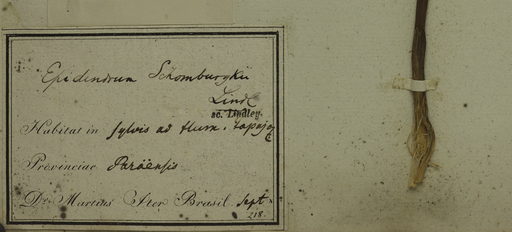 Epidendrum Schomburgkii
Lindl
sc. Lindley.
Habitat in sylvis ad flum. Tapajoz
Provinciae Paraënsis
Dr. Martius Iter Brasil. Sept
218.